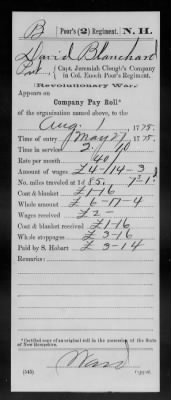 B (2) Poor's Regiment. N. H.
David Blanchard
Capt. Jeremiah Clough's Company
in Col. Enoch Poor's Regiment.
Revolutionary War.
Appears on
Company Pay Roll*
of the organization named above, to the
Aug. 1, 1775.
Time of entry May 27, 1775.
Time in service 2 - 10
Rate per month 40/
Amount of wages £4-14-3
No. miles traveled at 1d 85. 7s 1d
Coat & blanket £1-16
Whole amount £6-17-4
Wages received £2-
Coat & blanket received £1-16
Whole stoppages £3-16
Paid by S. Hobart £3-1-4
Remarks:
*Certified copy of an original roll in the possession of the State
of New Hampshire.
Ward
(545) Copyist.